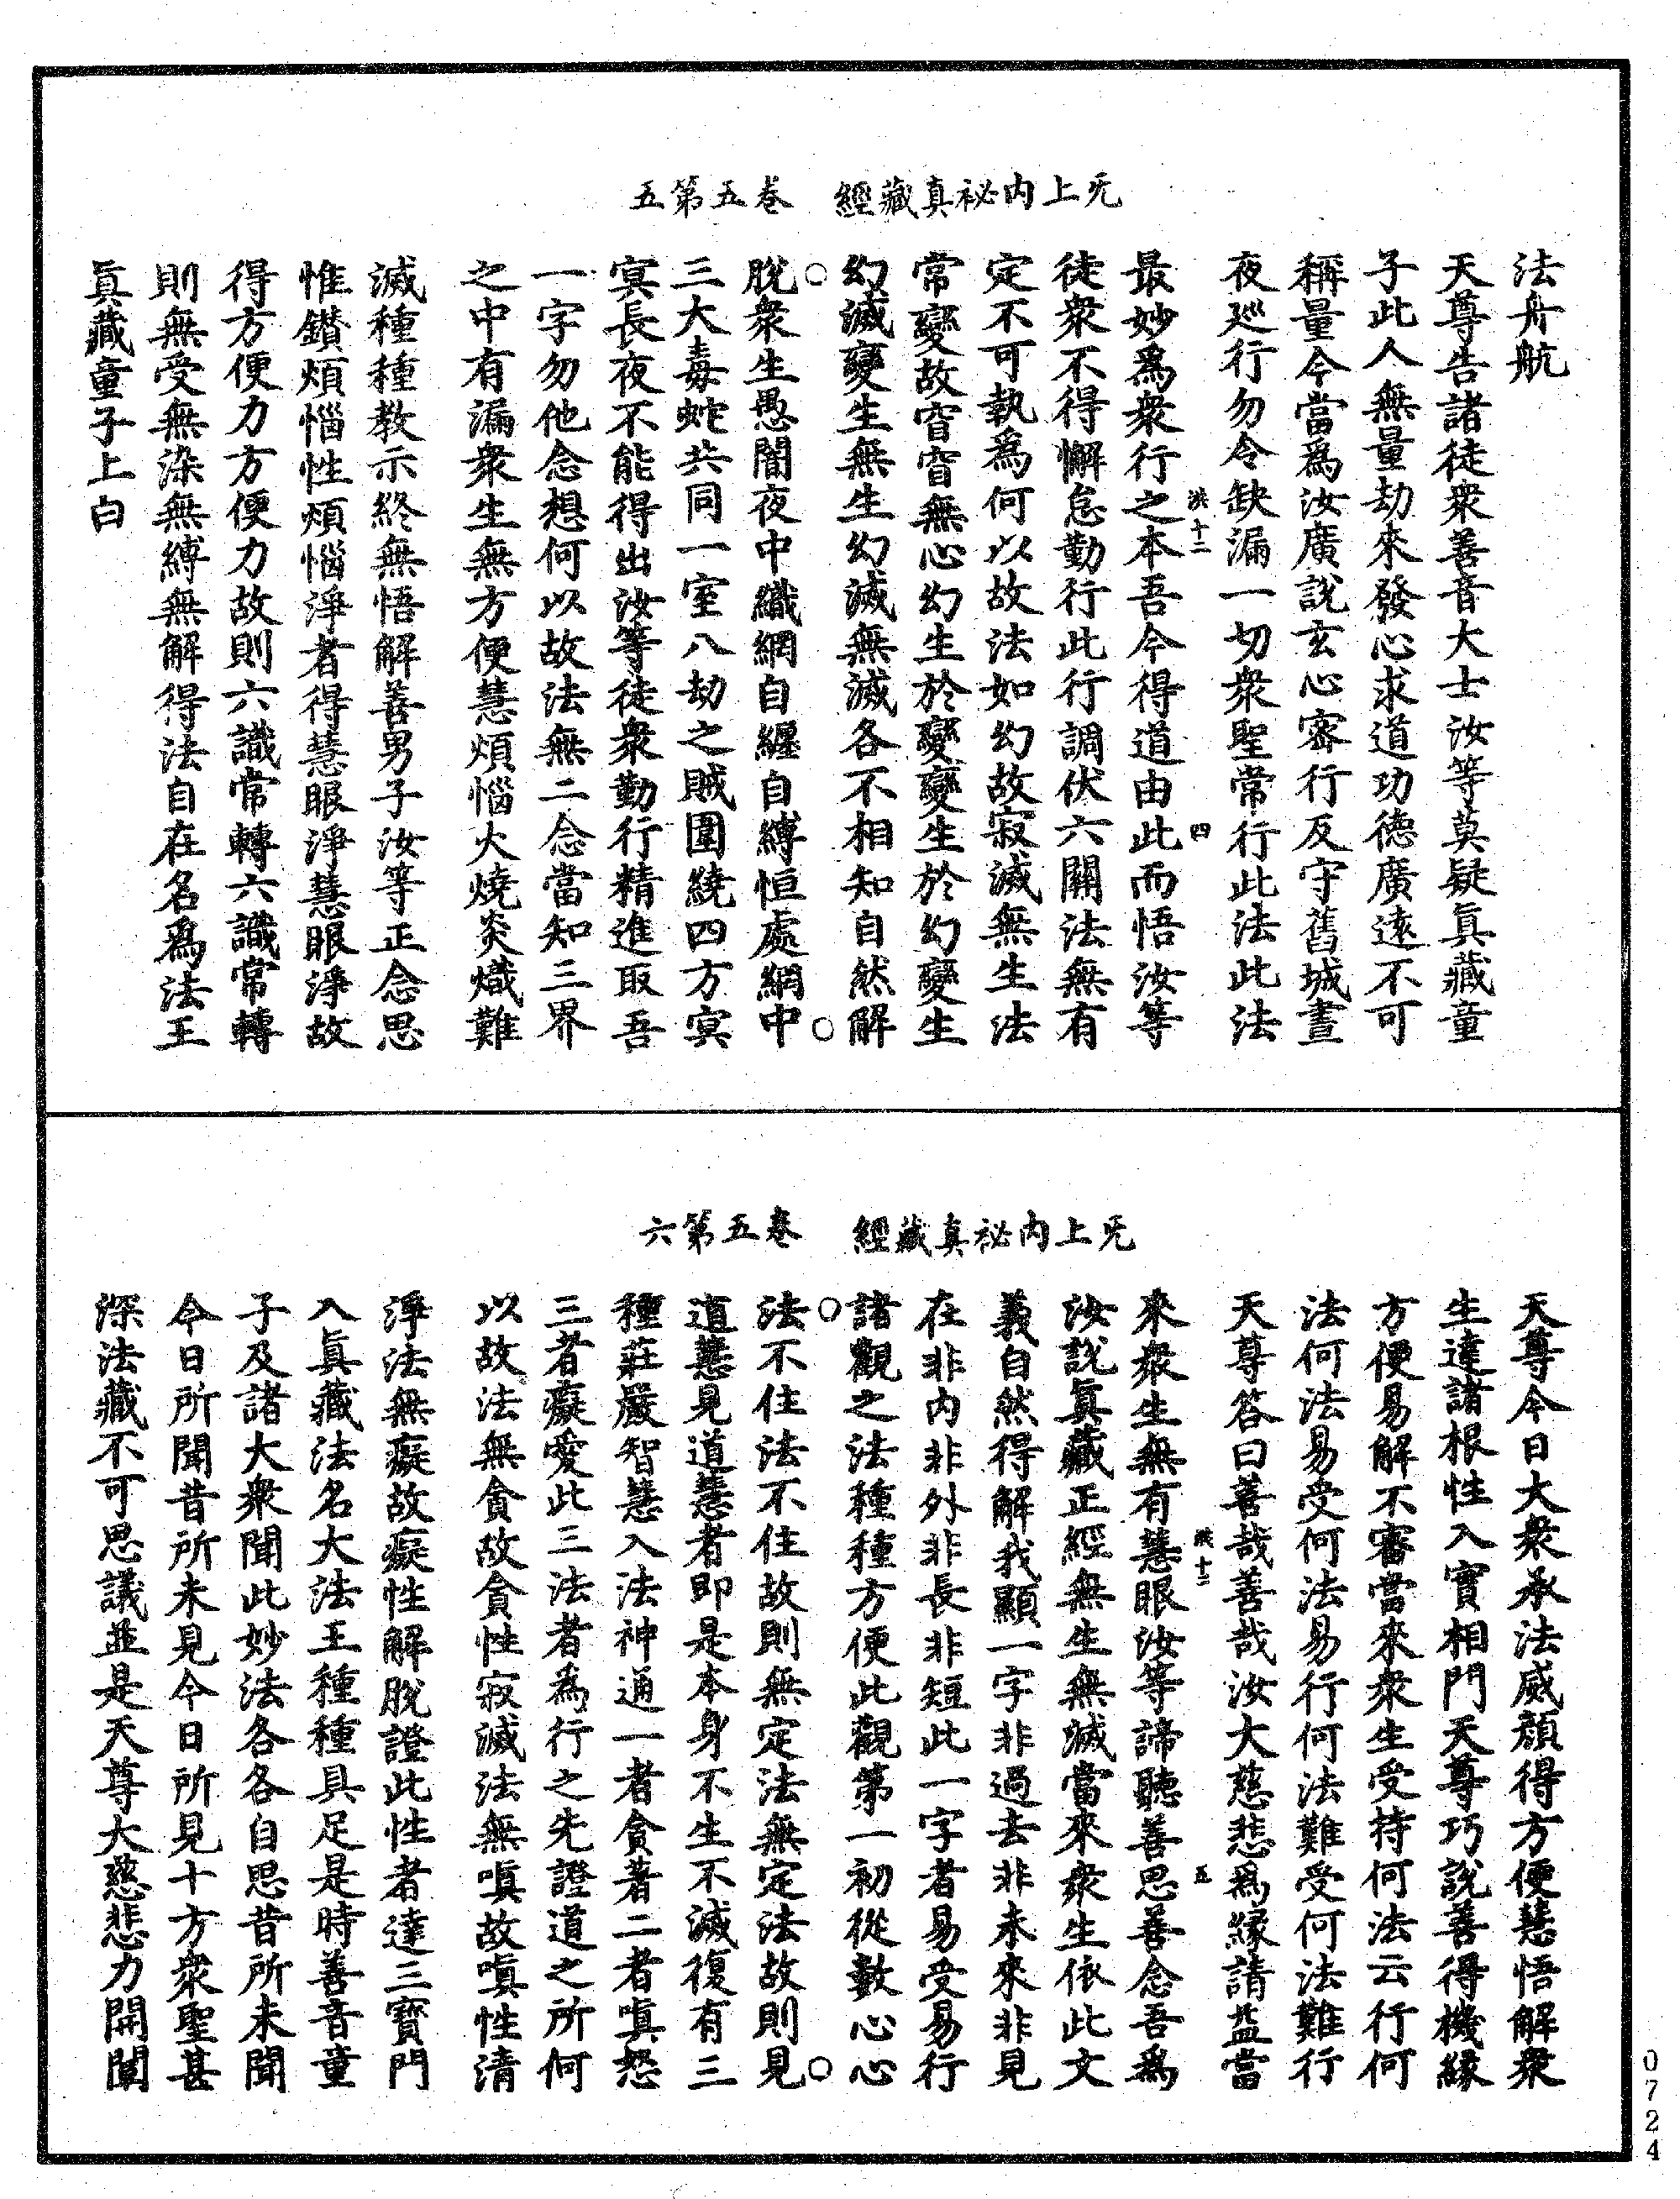 无上內祕真藏經　卷五第五
法舟航
天尊告諸徒衆善音大士汝等莫疑眞藏童
子此人無量劫來發心求道功德廣遠不可
稱量今當爲汝廣說玄心審行及守舊城晝
夜巡行勿令缺漏一切衆聖常行此法此法
洪十二　四
最妙爲衆行之本吾今得道由此而悟汝等
徒衆不得懈怠勤行此行調伏六關法無有
定不可執爲何以故法如幻故寂滅無生法
常變故窅窅無心幻生於變變生於幻變生
幻滅變生無生幻滅無滅各不相知自然解
脫衆生愚闇夜中織網自纏自縛恒處網中
三大毒蛇共同一室八劫之賊圍繞四方冥
冥長夜不能得出汝等徒衆勤行精進取吾
一字勿他念想何以故法無二念當知三界
之中有漏衆生無方便慧煩惱火燒炎熾難
滅種種教示終無悟解善男子汝等正念思
惟鑚煩惱性煩惱淨者得慧眼淨慧眼淨故
得方便力方便力故則六識常轉六識常轉
則無受無染無縛無解得法自在名爲法王
眞藏童子上白
无上內祕真藏經　卷五第六
天尊今日大衆承法威顏得方便慧悟解衆
生達諸根性入實相門天尊巧說善得機緣
方便易解不審當來衆生受持何法云行何
法何法易受何法易行何法難受何法難行
天尊答曰善哉善哉汝大慈悲爲緣請益當
洪十二　五
來衆生無有慧眼汝等諦聽善思善念吾爲
汝說眞藏正經無生無滅當來衆生依此文
義自然得解我顯一字非過去非未來非見
在非內非外非長非短此一字者易受易行
諸觀之法種種方便此觀第一初從數心心
法不住法不住故則無定法無定法故則見
道慧見道慧者即是本身不生不滅復有三
種莊嚴智慧入法神通一者貪著二者嗔怒
三者癡愛此三法者爲行之先證道之所何
以故法無貪故貪性寂滅法無嗔故嗔性清
淨法無癡故癡性解脫證此性者達三寶門
入眞藏法名大法王種種具足是時善音童
子及諸大衆聞此妙法各各自思昔所未聞
今日所聞昔所未見今日所見十方衆聖甚
深法藏不可思議並是天尊大慈悲力開闡
0724